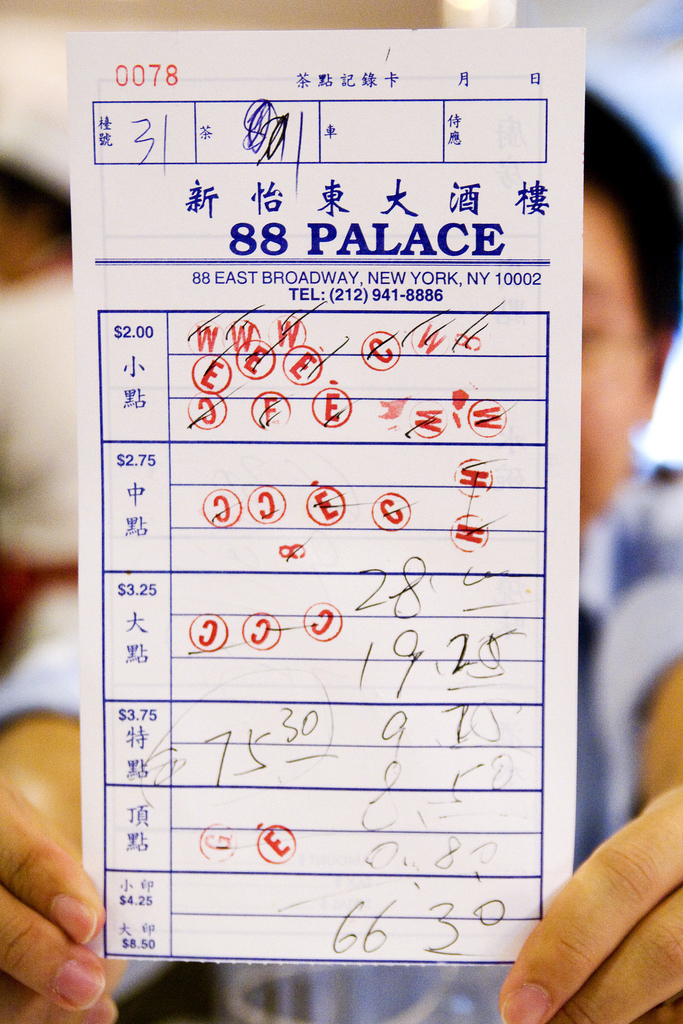 0078 茶點記錄卡 月 日
檯號 31 茶 車 侍應
新怡東大酒樓
88 PALACE
88 EAST BROADWAY, NEW YORK, NY 10002
TEL: (212) 941-8886
$2.00 小點
W W W C W 8
E E E
C E E W W
$2.75 中點
H
C C E C
H
8
28.
$3.25 大點
C C C
19.25
$3.75 特點
9.75
75 30
8.50
頂點
E
0.80
小印 $4.25
66.30
大印 $8.50